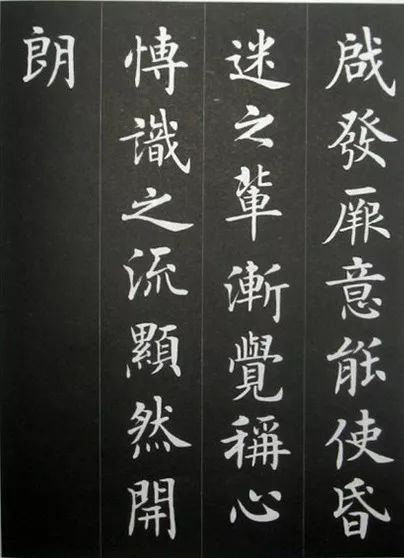 啟發厥意能使昏
迷之輩漸覺稱心
愽識之流顯然開
朗